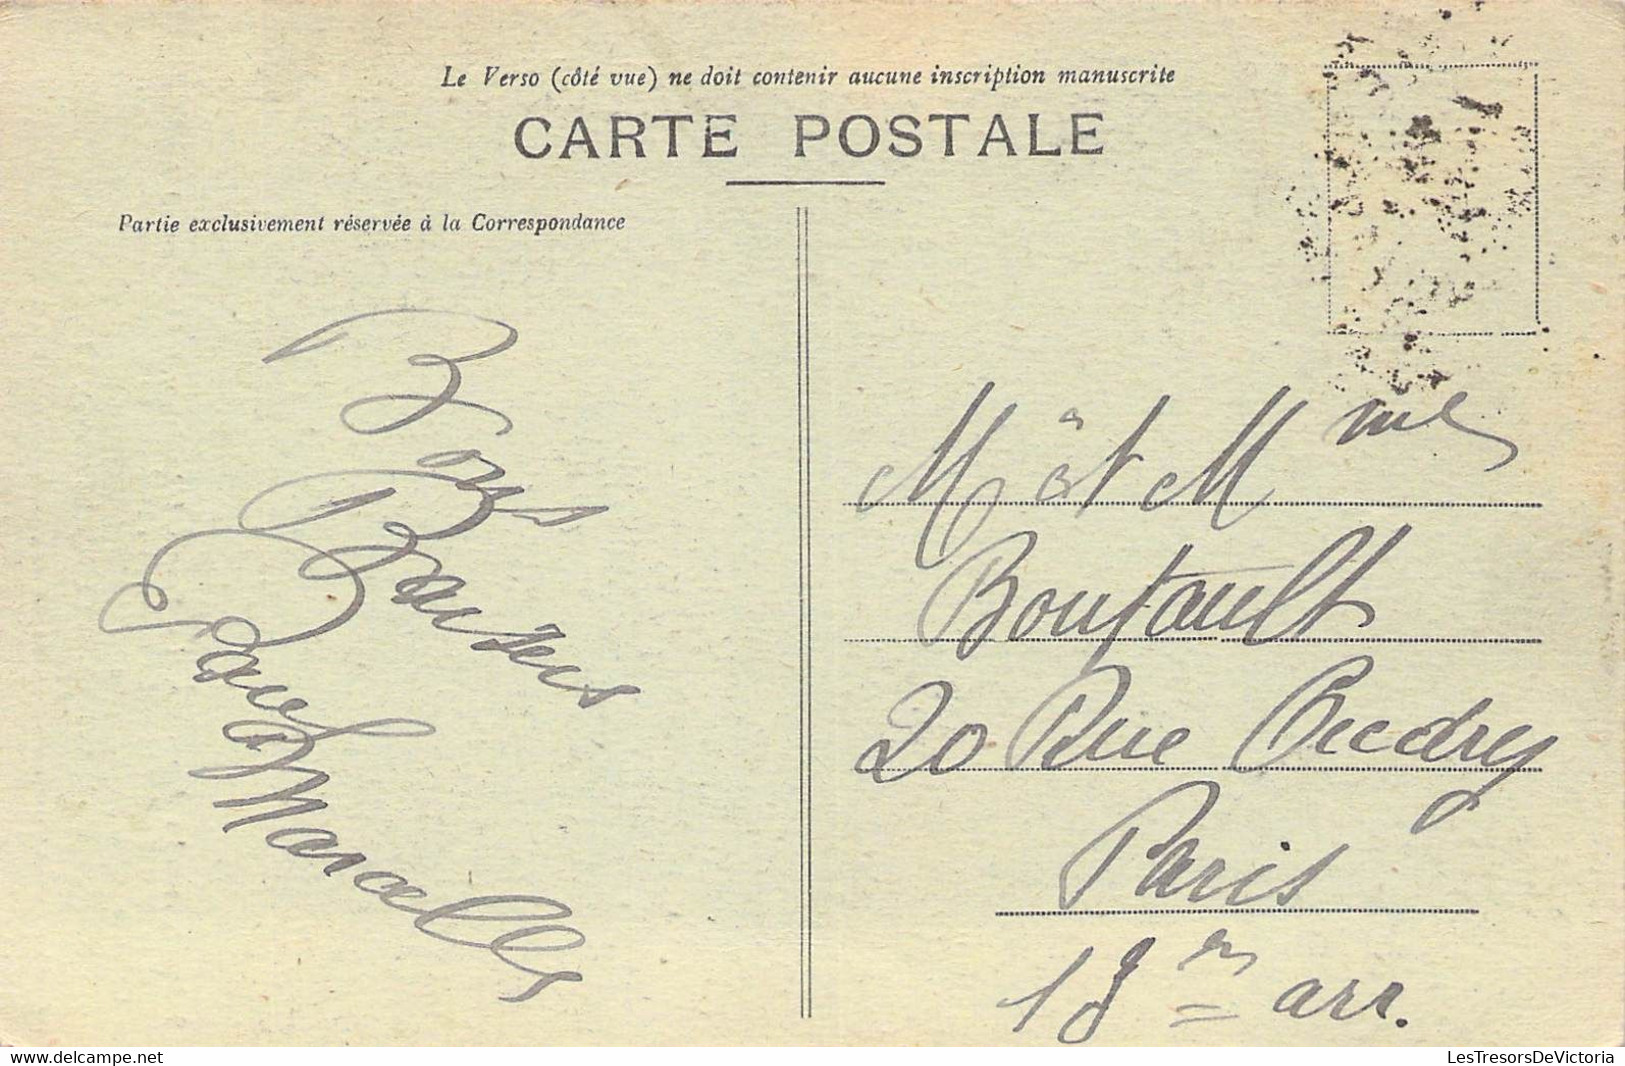 Le Verso (côté vue) ne doit contenir aucune inscription manuscrite
CARTE POSTALE
Partie exclusivement réservée à la Correspondance
Bons
Baisers
Paul
Marcelle
M et Mme
Boutault
20 Rue
Paris
18em arr.
www.delcampe.net
LesTresorsDeVictoria